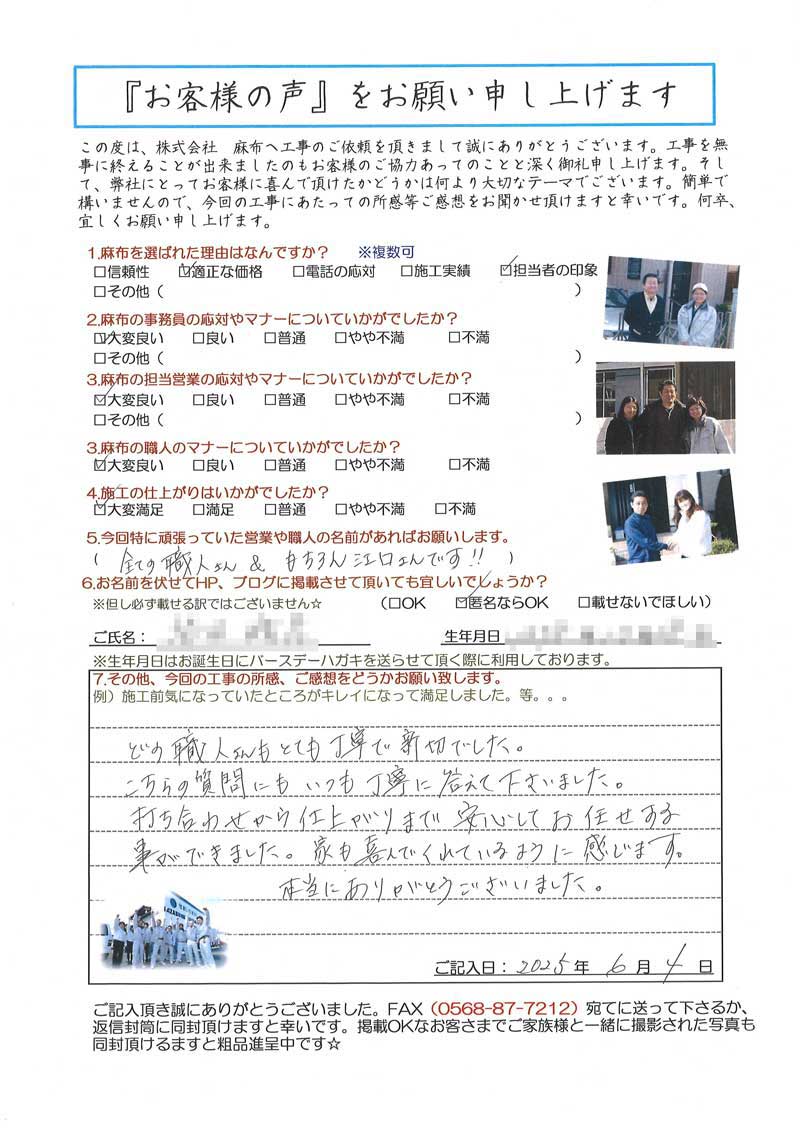 『お客様の声』をお願い申し上げます
この度は、株式会社　麻布へ工事のご依頼を頂きまして誠にありがとうございます。工事を無
事に終えることが出来ましたのもお客様のご協力あってのことと深く御礼申し上げます。そし
て、弊社にとってお客様に喜んで頂けたかどうかは何より大切なテーマでございます。簡単で
構いませんので、今回の工事にあたっての所感等ご感想をお聞かせ頂けますと幸いです。何卒、
宜しくお願い申し上げます。
1.麻布を選ばれた理由はなんですか？　※複数可
□信頼性　☑適正な価格　□電話の応対　□施工実績　☑担当者の印象
□その他（　）
2.麻布の事務員の応対やマナーについていかがでしたか？
☑大変良い　□良い　□普通　□やや不満　□不満
□その他（　）
3.麻布の担当営業の応対やマナーについていかがでしたか？
☑大変良い　□良い　□普通　□やや不満　□不満
□その他（　）
3.麻布の職人のマナーについていかがでしたか？
☑大変良い　□良い　□普通　□やや不満　□不満
4.施工の仕上がりはいかがでしたか？
☑大変満足　□満足　□普通　□やや不満　□不満
5.今回特に頑張っていた営業や職人の名前があればお願いします。
（全ての職人さん & もちろん江口さんです!!）
6.お名前を伏せてHP、ブログに掲載させて頂いても宜しいでしょうか？
※但し必ず載せる訳ではございません☆　（□OK　☑匿名ならOK　□載せないでほしい）
ご氏名：　生年月日
※生年月日はお誕生日にバースデーハガキを送らせて頂く際に利用しております。
7.その他、今回の工事の所感、ご感想をどうかお願い致します。
例）施工前気になっていたところがキレイになって満足しました。等。。。
どの職人さんもとても丁寧で親切でした。
こちらの質問にもいつも丁寧に答えて下さいました。
打ち合わせから仕上がりまで安心してお任せする
事ができました。家も喜んでくれているように感じます。
本当にありがとうございました。
ご記入日：2025年 6月 4日
ご記入頂き誠にありがとうございました。FAX（0568-87-7212）宛てに送って下さるか、
返信封筒に同封頂けますと幸いです。掲載OKなお客さまでご家族様と一緒に撮影された写真も
同封頂けるますと粗品進呈中です☆